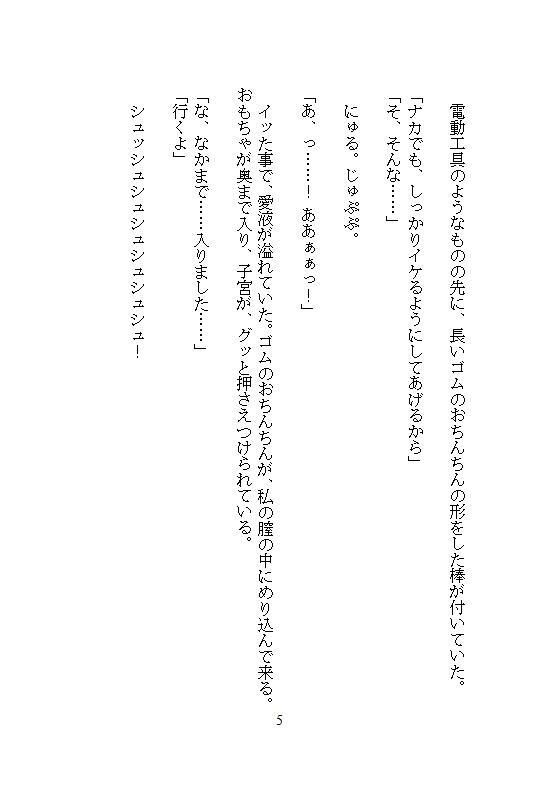 電動工具のようなものの先に、長いゴムのおちんちんの形をした棒が付いていた。
「ナカでも、しっかりイケるようにしてあげるから」
「そ、そんな……」
にゅる。じゅぷぷ。
「あ、っ……！ ああぁぁっ！」
イッた事で、愛液が溢れていた。ゴムのおちんちんが、私の膣の中にめり込んで来る。
おもちゃが奥まで入り、子宮が、グッと押さえつけられている。
「な、なかまで……入りました……」
「行くよ」
シュッシュシュシュシュシュシュ！
5